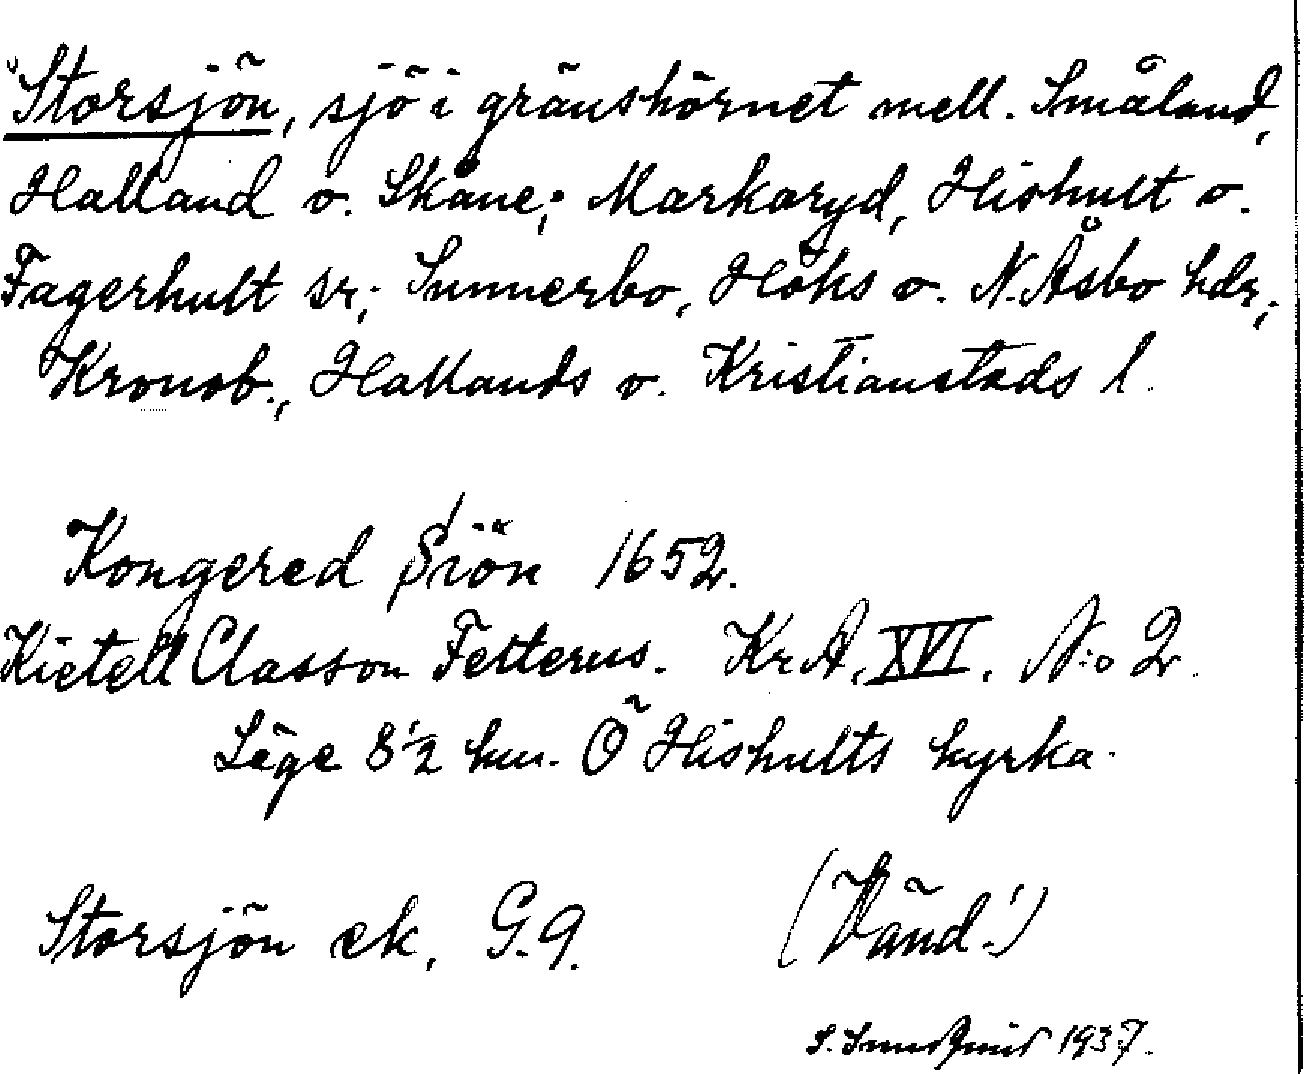 Storsjön, sjö i gränshörnet mell. Småland,
Halland o. Skåne; Markaryd, Hishult o.
Fagerhult sr; Sunnerbo, Höks o. N. Åsbo hdr;
Kronob., Hallands o. Kristianstads l.
Kongered Siön 1652.
Kietell Classon Felterus. Kr. A. XVI. N:o 2.
Läge 8 1/2 km. Ö Hishults kyrka.
Storsjön ek. G. 9. (Vänd!)
S. 1937.